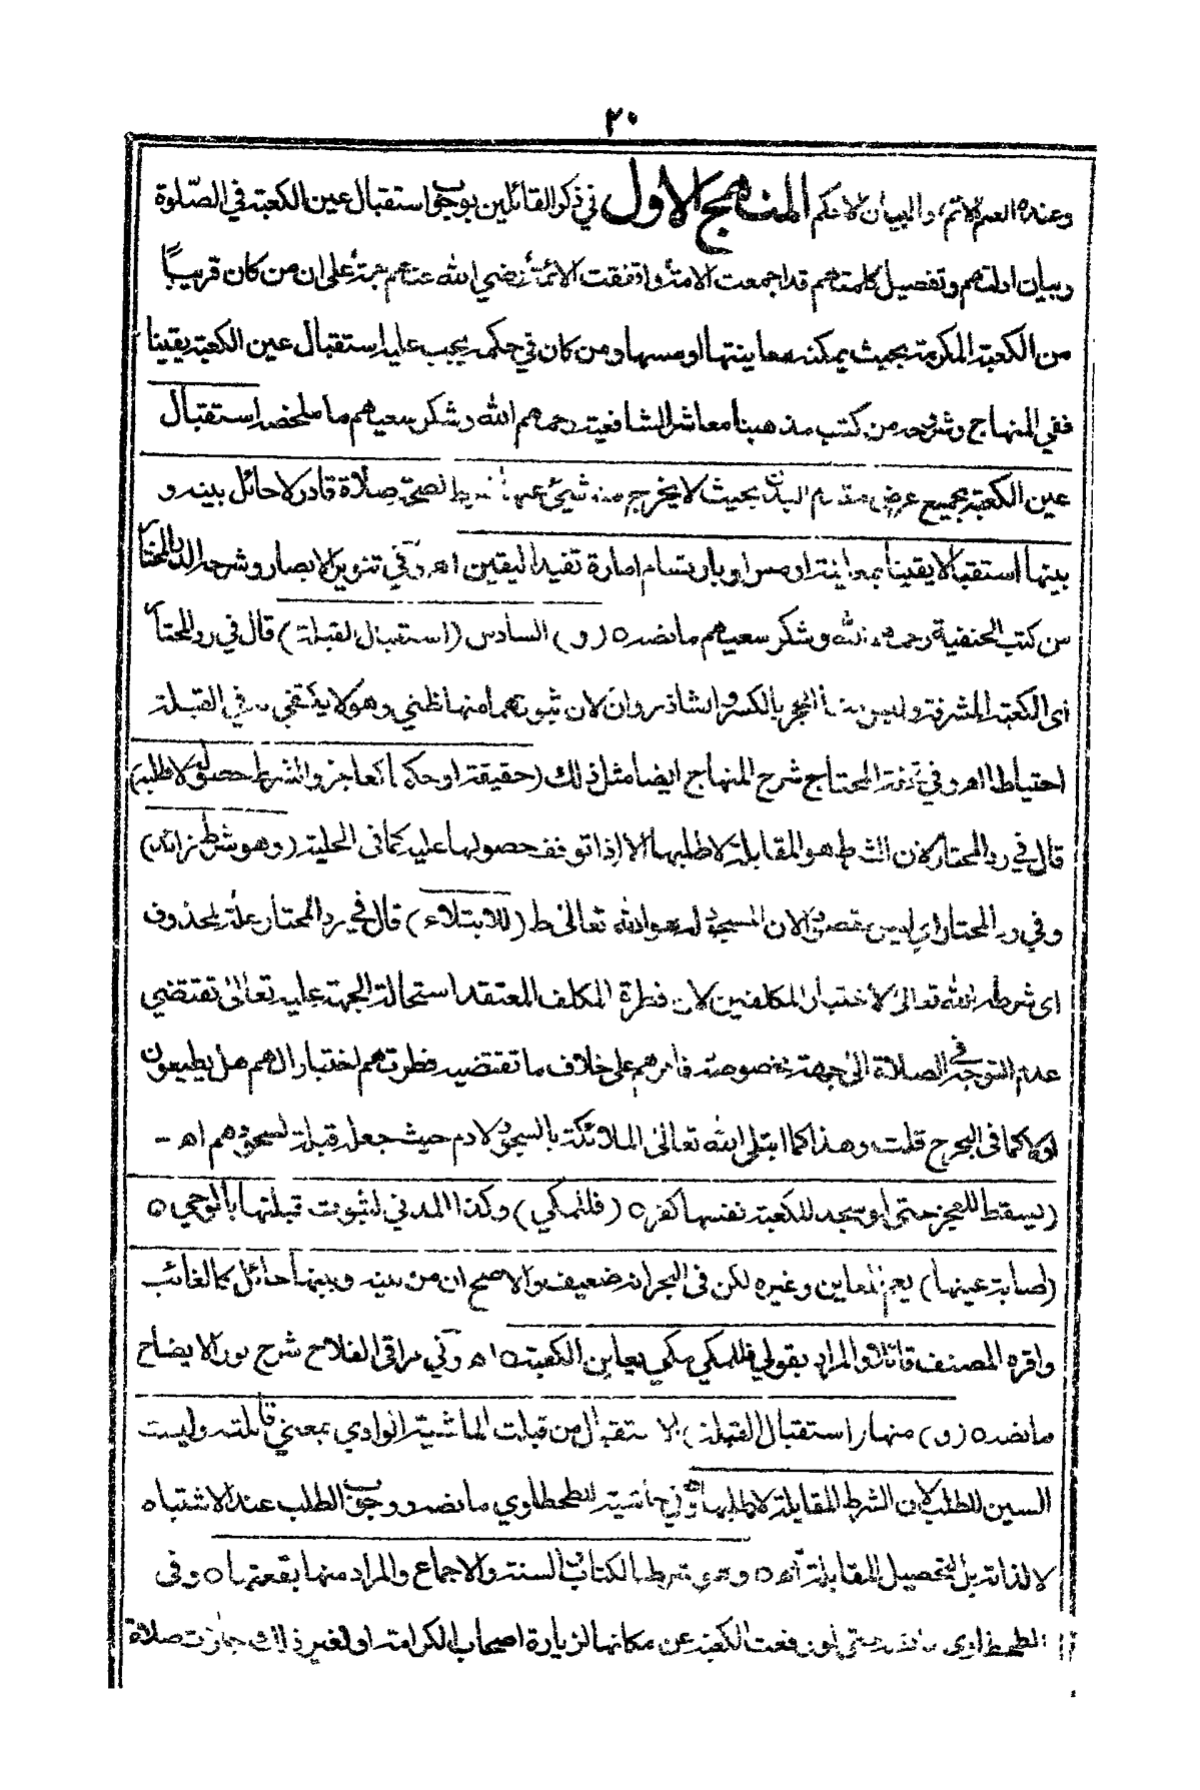 ٢٠
وعنده العلم الاتم، والبيان الاحكم المنهج الاول في ذكر القائلين بوجوب استقبال عين الكعبة في الصلوة
وبيان ادلتهم وتفصيل كلمتهم قد اجمعت الامة واتفقت الائمة رضي الله عنهم جمة على ان من كان قريباً
من الكعبة المكرمة بحيث يمكنه معاينتها او مسها ومن كان في حكمه يجب عليه استقبال عين الكعبة يقينا
ففي المنهاج وشروحه من كتب مذهبنا معاشر الشافعية رحمهم الله وشكر سعيهم ما ملخصه استقبال
عين الكعبة بجميع عرض مقدم البدن بحيث لا يخرج منه شيئ عنها شرط لصحة صلاة قادر لا حائل بينه و
بينها استقبالا يقينا بمعاينة او مس او بارتسام امارة تفيد اليقين اه وفي تنوير الابصار وشرحه الدر المختار
من كتب الحنفية رحمهم الله وشكر سعيهم ما نصه ٥ (و) السادس (استقبال القبلة) قال في رد المحتار
اى الكعبة المشرفة وليس منها الحجر بالكسر والشاذروان لان ثبوتهما منها ظني وهو لا يكتفي به في القبلة
احتياطا اه وفي تحفة المحتاج شرح المنهاج ايضا مثل ذلك (حقيقة او حكما كعاجز والشرط حصوله لا طلبه)
قال في رد المحتار لان الشرط هو المقابلة لا طلبها الا اذا توقف حصولها عليه كما فى الحلية (وهو شرط زائد)
وفي رد المحتار اي ليس مقصودا لان المسجود له هو الله تعالى ط (للابتلاء) قال في رد المحتار علة لمحذوف
اى شرطه الله تعالى لاختبار المكلفين لان فطرة المكلف المعتقد استحالة الجهة عليه تعالى تقتضي
عدم التوجه في الصلاة الى جهة مخصوصة فامرهم على خلاف ما تقتضيه فطرتهم اختبارا لهم هل يطيعون
اولا كما فى البحر ح قلت وهذا كما ابتلى الله تعالى الملائكة بالسجود لادم حيث جعله قبلة لسجودهم اه -
(يسقط للعجز حتى لو سجد للكعبة نفسها كفر ٥ (فللمكي) وكذا المدني لثبوت قبلتها بالوحي ٥
(اصابة عينها) يعم المعاين وغيره لكن فى البحر انه ضعيف والاصح ان من بينه وبينها حائل كالغائب
واقره المصنف قائلا والمراد بقولي فللمكي مكي يعاين الكعبة ٥ اه وفي مراقى الفلاح شرح نور الايضاح
ما نصه ٥ (و) منها (استقبال القبلة) الاستقبال من قبلت الماشية الوادي بمعنى قابلته وليست
السين للطلب لان الشرط المقابلة لا طلبها اه وفي حاشية الطحطاوي ما نصه ووجوب الطلب عند الاشتباه
لا لذاته بل لتحصيل المقابلة اه ٥ وهو شرط بالكتاب والسنة والاجماع والمراد منها بقعتها ٥ وفى
الطحطاوي ما نصه حتى لو رفعت الكعبة عن مكانها لزيارة اصحاب الكرامة او لغير ذلك جازت صلاة